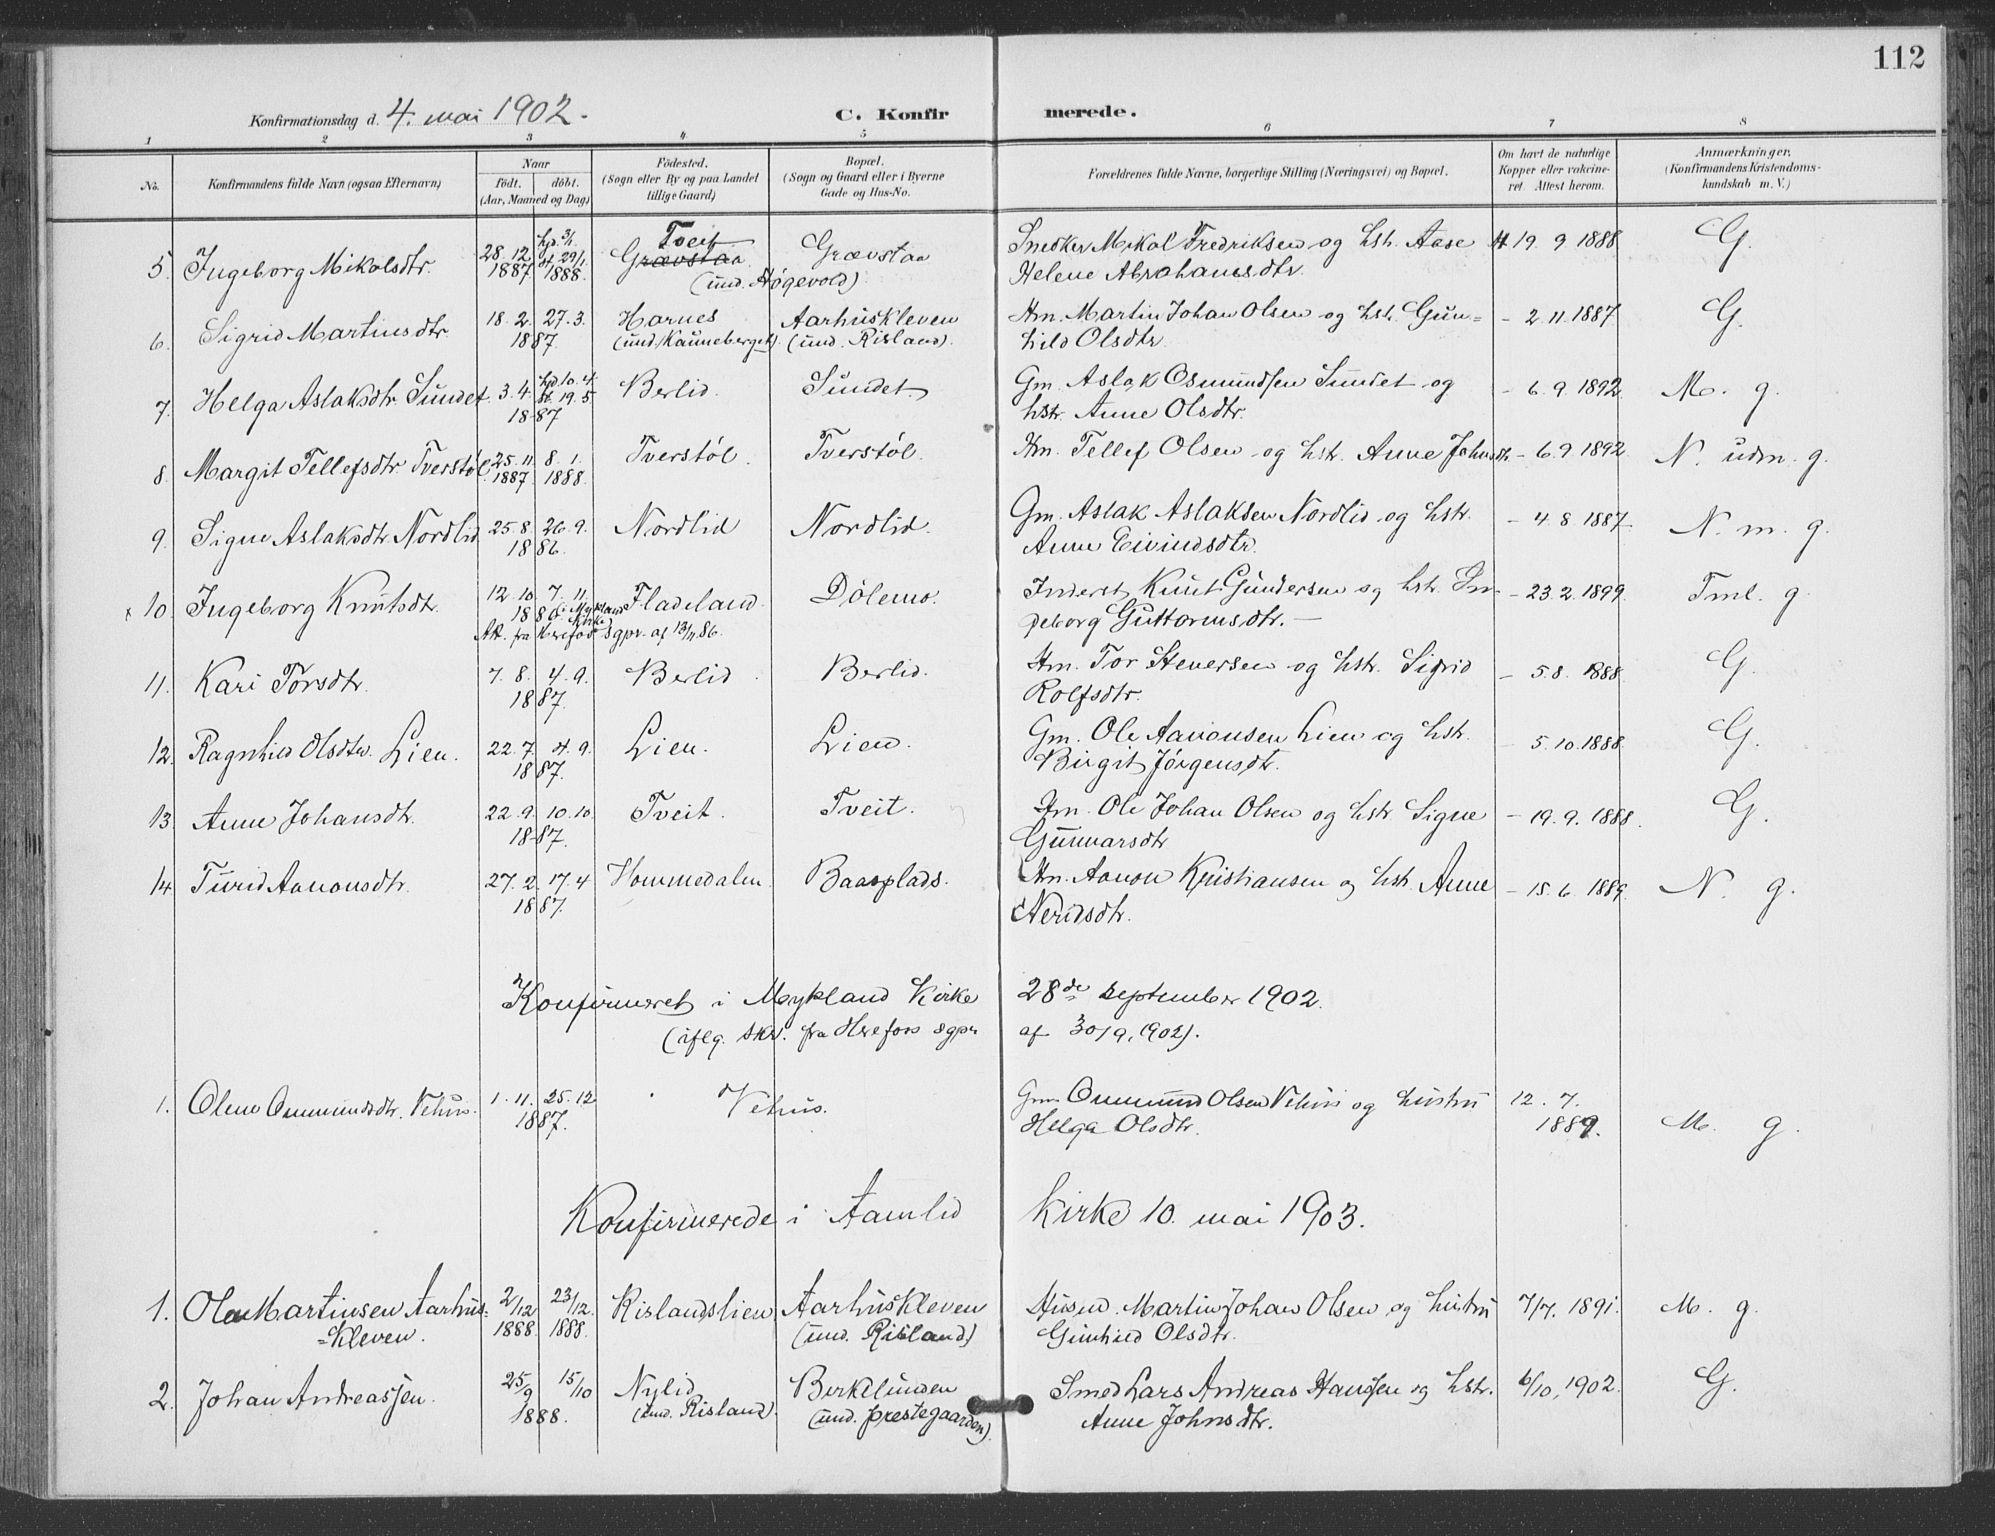 112
Konfirmationsdag d. 4. mai 1902.
C. Konfirmerede.
1 2 3 4 5 6 7 8
No.
Konfirmandens fulde Navn (ogsaa Efternavn)
Naar
födt. döbt.
(Aar, Maaned og Dag)
Födested.
(Sogn eller By og paa Landet
tillige Gaard)
Bopæl.
(Sogn og Gaard eller i Byerne
Gade og Hus-No.
Forældrenes fulde Navne, borgerlige Stilling (Næringsvei) og Bopæl.
Om havt de naturlige
Kopper eller vakcine-
ret. Attest herom.
Anmærkninger.
(Konfirmandens Kristendoms-
kundskab m. V.)
5. Ingeborg Mikalsdtr. 28.12. 1887 hjd. 3/1. st. 29/1. 1888. Tveit Grævstaa (und. Høgevold) Grævstaa Snedker Mikal Fredriksen og hst. Aase 19. 9 1888. G.
Helene Abrahamsdtr.
6. Sigrid Martinsdtr. 18. 2. 27. 3. 1887. Harnes (und. Kauneberget) Aarhuskleven (und. Risland). Hm. Martin Johan Olsen og hst. Gun= - 2. 11. 1887. G.
hild Olsdtr.
7. Helga Aslaksdtr. Sundet. 3. 4. hjd. 10. 4. st. 19. 5 1887 Berlid. Sundet Gm. Aslak Osmundsen Sundet og - 6. 9. 1892. M. g.
hstr. Anne Olsdtr.
8. Margit Tellefsdtr. Tverstøl. 25. 11. 1887. 8. 1. 1888. Tverstøl. Tverstøl. Hm. Tellef Olsen og hstr. Anne Johnsdtr. - 6. 9 1892 N. udm. g.
9. Signe Aslaksdtr. Nordlid 25. 8. 26. 9. 1886. Nordlid Nordlid. Gm. Aslak Aslaksen Nordlid og hstr. - 4. 8 1887. N. m. g.
Anne Eivindsdtr.
x 10. Ingeborg Knutsdtr. 12. 10. 7. 11. 1886. (i Mykland Kirke) Fladeland. Dølemo. Inderst Knut Gundersen og hstr. In- - 23. 2. 1899. Tml. g.
Att. fra Herefos sgpr. af 13/11 86. geborg Guttormsdtr. —
11. Kari Torsdtr. 7. 8. 4. 9. 1887. Berlid. Berlid. Hm. Tor Steversen og hstr. Sigrid - 5. 8. 1888. G.
Rolfsdtr.
12. Ragnhild Olsdtr. Lien. 22. 7. 4. 9. 1887. Lien. Lien. Gm. Ole Aanonsen Lien og hstr. - 5. 10. 1888. G.
Birgit Jørgensdtr.
13. Anne Johansdtr. 22. 9. 10. 10. 1887. Tveit. Tveit. Hm. Ole Johan Olsen og hstr. Signe - 19. 9. 1888. G.
Gunnarsdtr
14. Turid Aanonsdtr. 27. 2. 17. 4 1887. Hommedalen. Baasplads. Hm. Aanon Kristiansen og hst. Anne - 15. 6. 1889. N. g.
Neridsdtr.
Konfirmeret i Mykland Kirke 28de september 1902.
(iflg. skr. fra Herefoss sgpr. af 30/9. 1902).
1. Olene Ommundsdtr. Vehus. 1. 11. 25. 12 1887. Vehus. Gm. Ommund Olsen Vehus og hustru 12. 7. 1889. M. g.
Helga Olsdtr.
Konfirmerede i Aamlid Kirke 10. mai 1903.
1. Ole Martinsen Aarhus= 2/12 1888. 23/12. 1888. Rislandslien Aarhuskleven (und. Risland) Husmd. Martin Johan Olsen og hustru 7/7. 1891. M. g.
=kleven. Gunhild Olsdtr.
2. Johan Andreassen. 25/9 15/10 1888. Nylid (und. Risland). Birkelunden (und. prestegaarden). Smed Lars Andreas Hansen og hstr. 6/10, 1902. G.
Anne Johnsdtr.